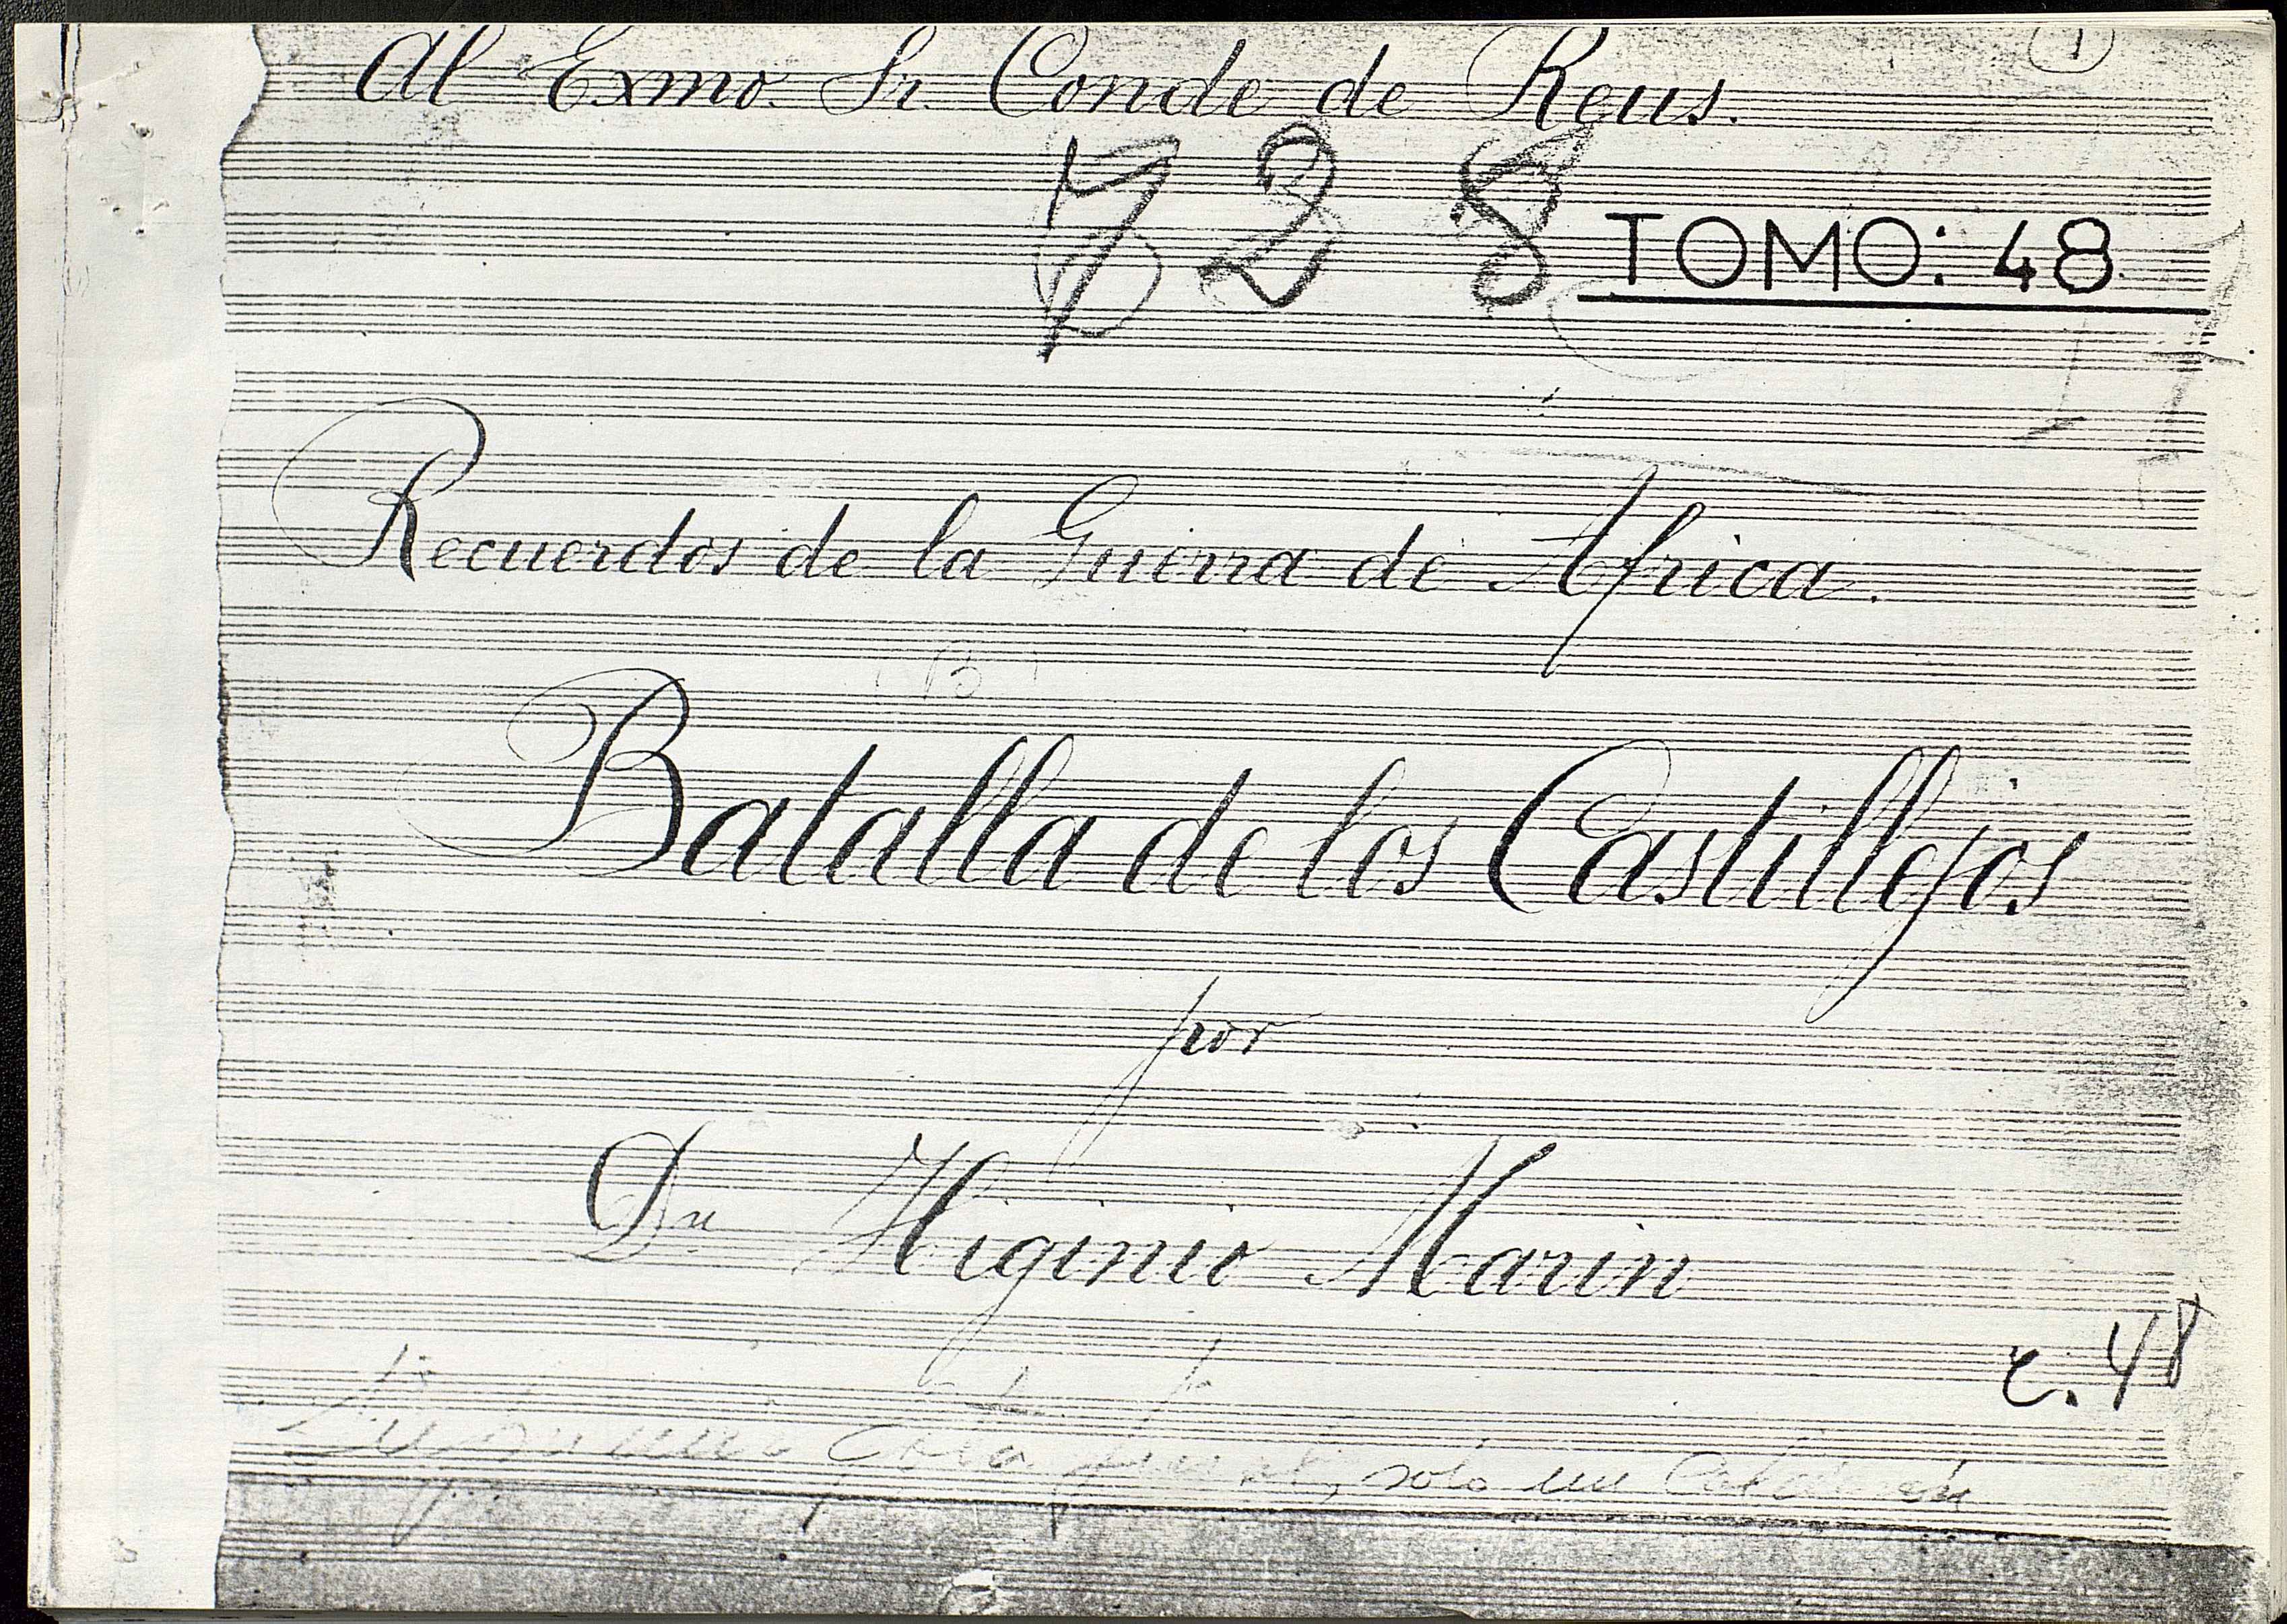 Al Exmo. Sr. Conde de Reus.
1
728
TOMO: 48
Recuerdos de la Guerra de Africa.
Batalla de los Castillejos
por
Dn Higinio Marin
c. 48
, solo un